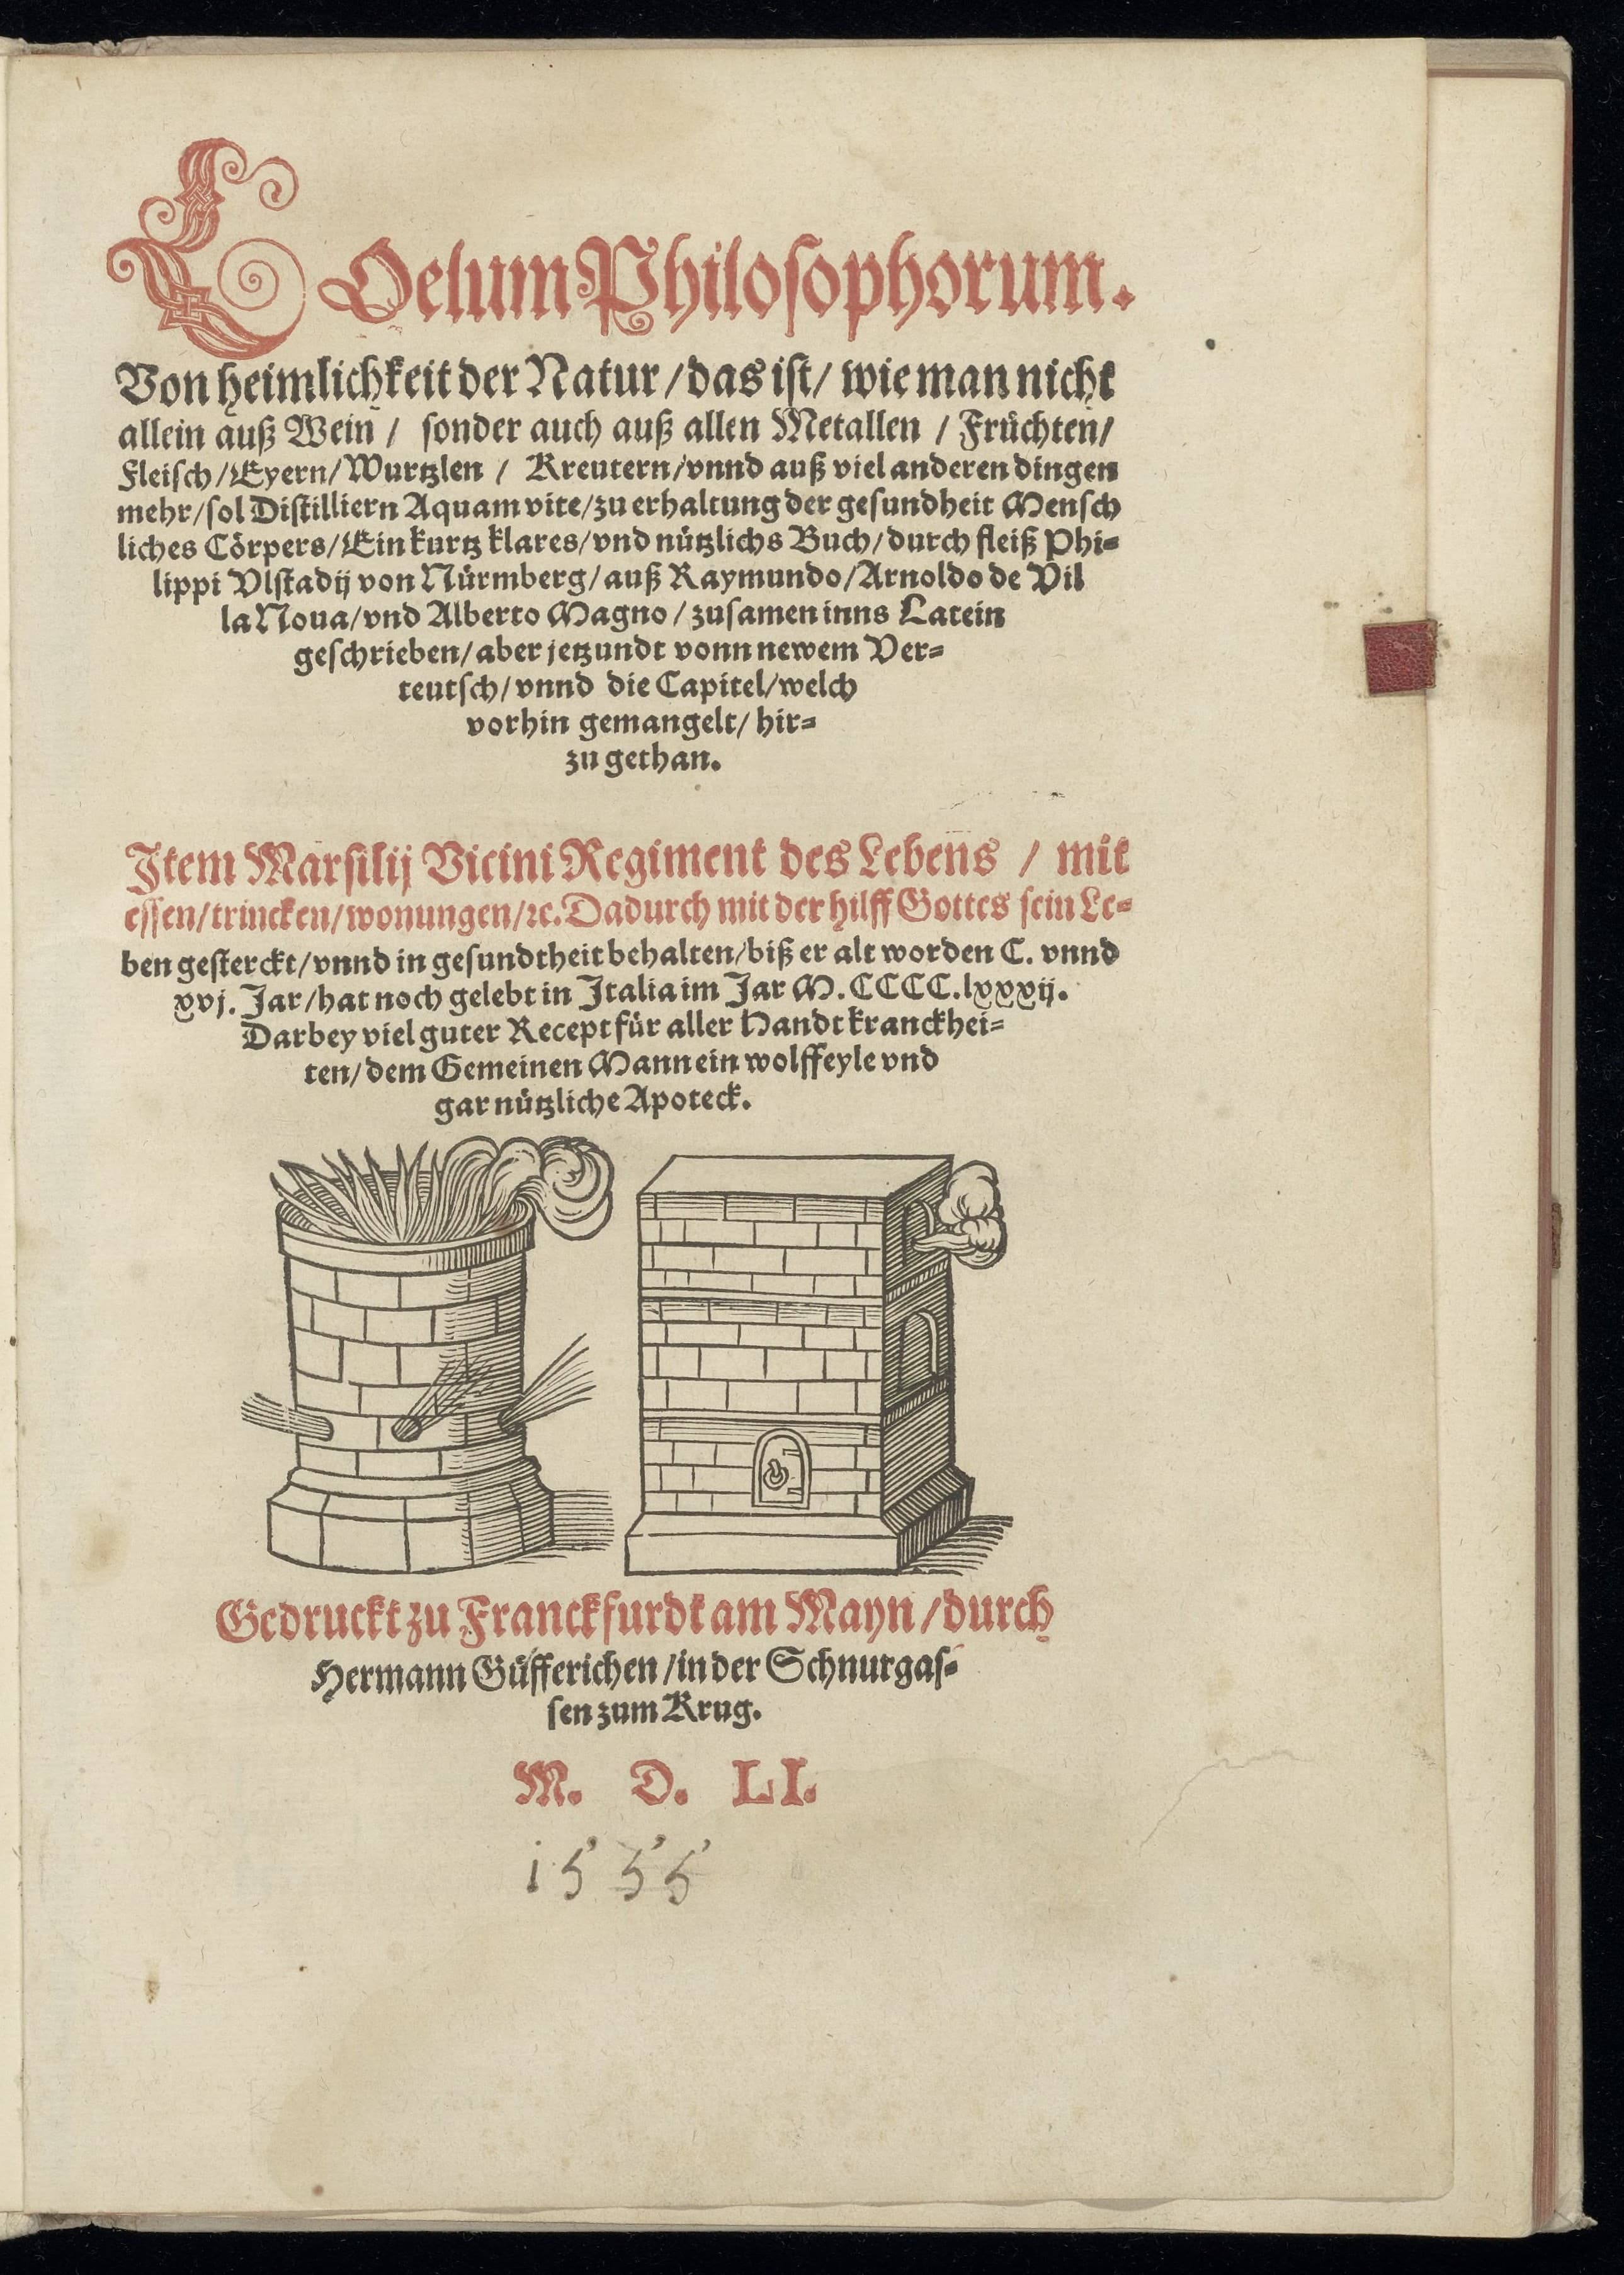 COelum Philosophorum.
Von heimlichkeit der Natur / das ist / wie man nicht
allein auß Wein / sonder auch auß allen Metallen / Früchten /
Fleisch / Eyern / Wurtzlen / Kreutern / vnnd auß viel anderen dingen
mehr / sol Distilliern Aquam vite / zu erhaltung der gesundheit Mensch
liches Cörpers / Ein kurtz klares / vnd nützlichs Buch / durch fleiß Phi=
lippi Vlstadij von Nürmberg / auß Raymundo / Arnoldo de Vil
la Noua / vnd Alberto Magno / zusamen inns Latein
geschrieben / aber jetzundt vonn newem Ver=
teutsch / vnnd die Capitel / welch
vorhin gemangelt / hir=
zu gethan.
Item Marsilij Vicini Regiment des Lebens / mit
essen / trincken / wonungen / ꝛc. Dadurch mit der hilff Gottes sein Le=
ben gesterckt / vnnd in gesundtheit behalten / biß er alt worden C. vnnd
xvj. Jar / hat noch gelebt in Italia im Jar M. CCCC. lxxxij.
Darbey viel guter Recept für aller Handt kranckhei=
ten / dem Gemeinen Mann ein wolffeyle vnd
gar nützliche Apoteck.
Gedruckt zu Franckfurdt am Mayn / durch
Hermann Gülfferichen / in der Schnurgas=
sen zum Krug.
M. D. LI.
1555